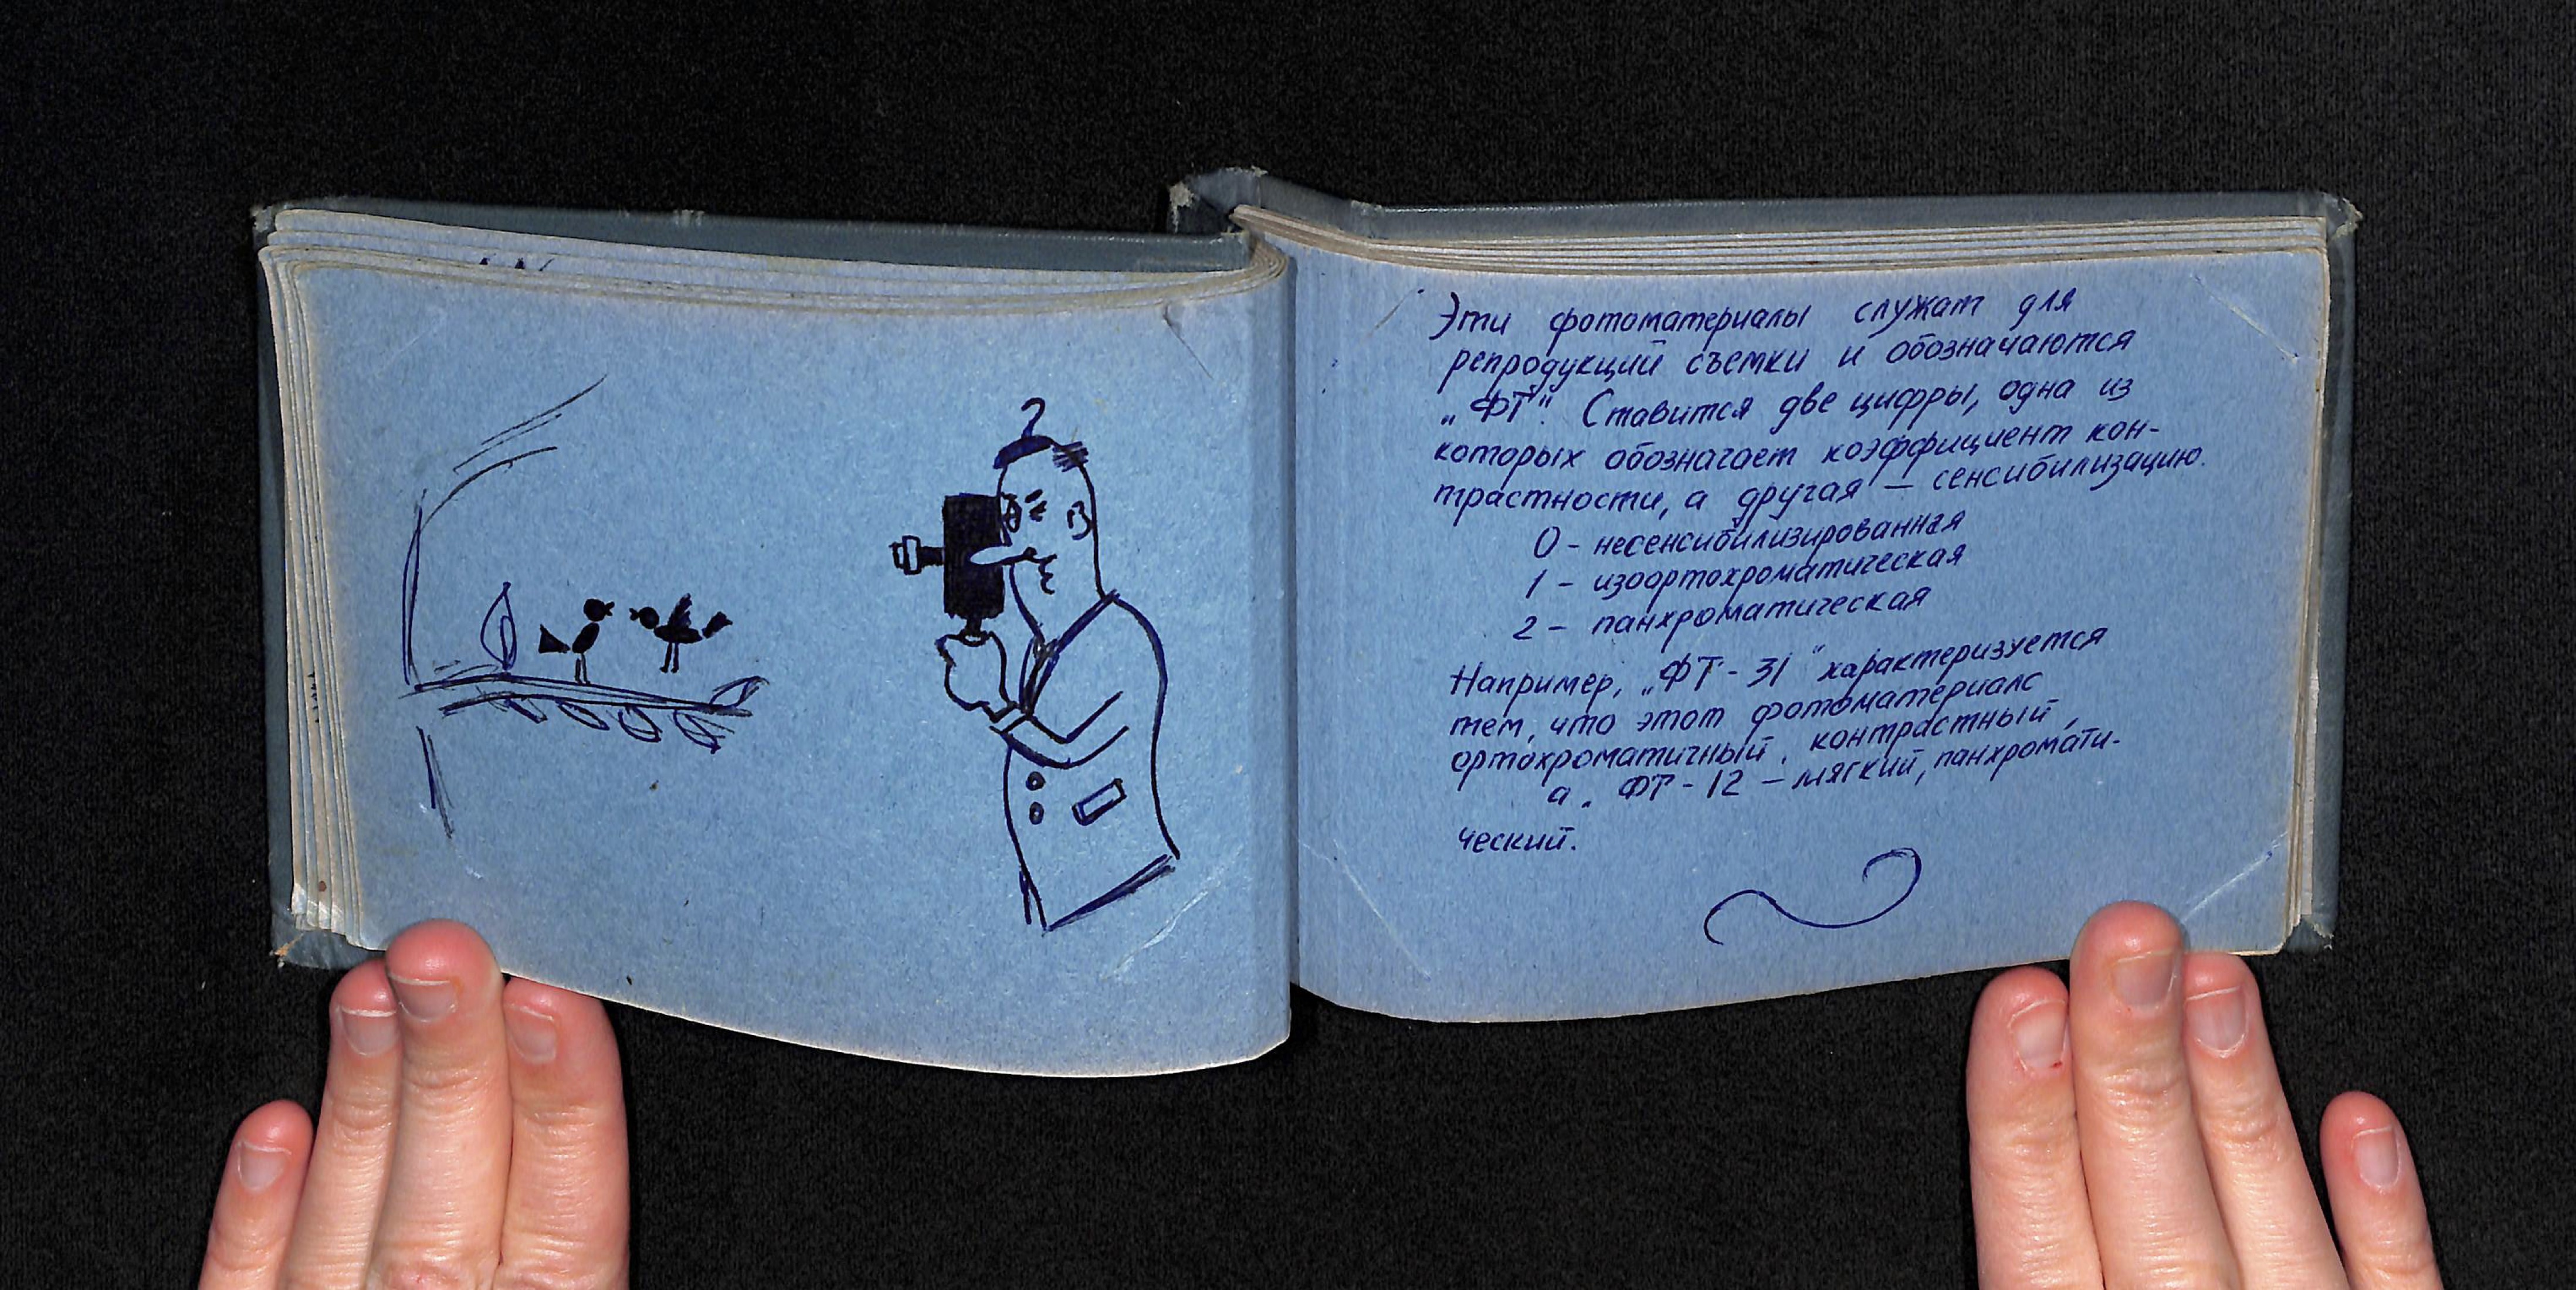 Эти фотоматериалы служат для
репродукций съемки и обозначаются
„ФТ". Ставится две цифры, одна из
которых обозначает коэффициент кон-
трастности, а другая — сенсибилизацию.
0 - несенсибилизированная
1 - изоортохроматическая
2 - панхроматическая
Например, „ФТ - 31" характеризуется
тем, что этот фотоматериалс
ортохроматичный, контрастный,
а „ ФТ - 12 — мягкий, панхромати-
ческий.